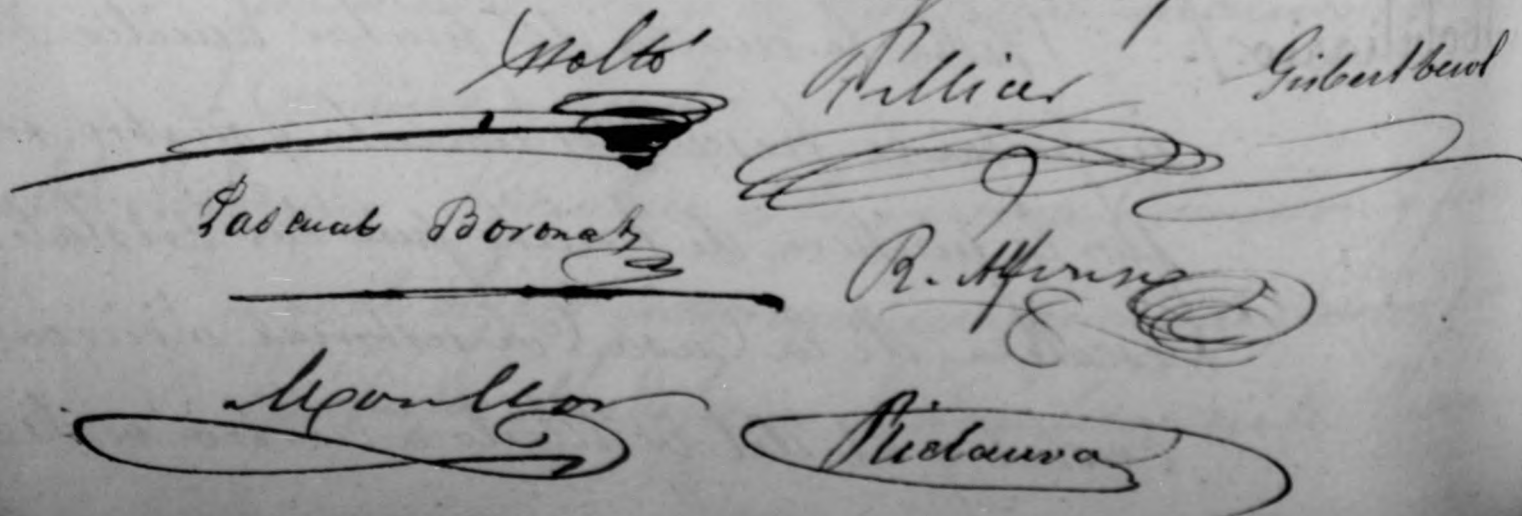 Moltó Pellicer Gisbert
Pascual Boronat R. Alfonso
Monllor Ridaura